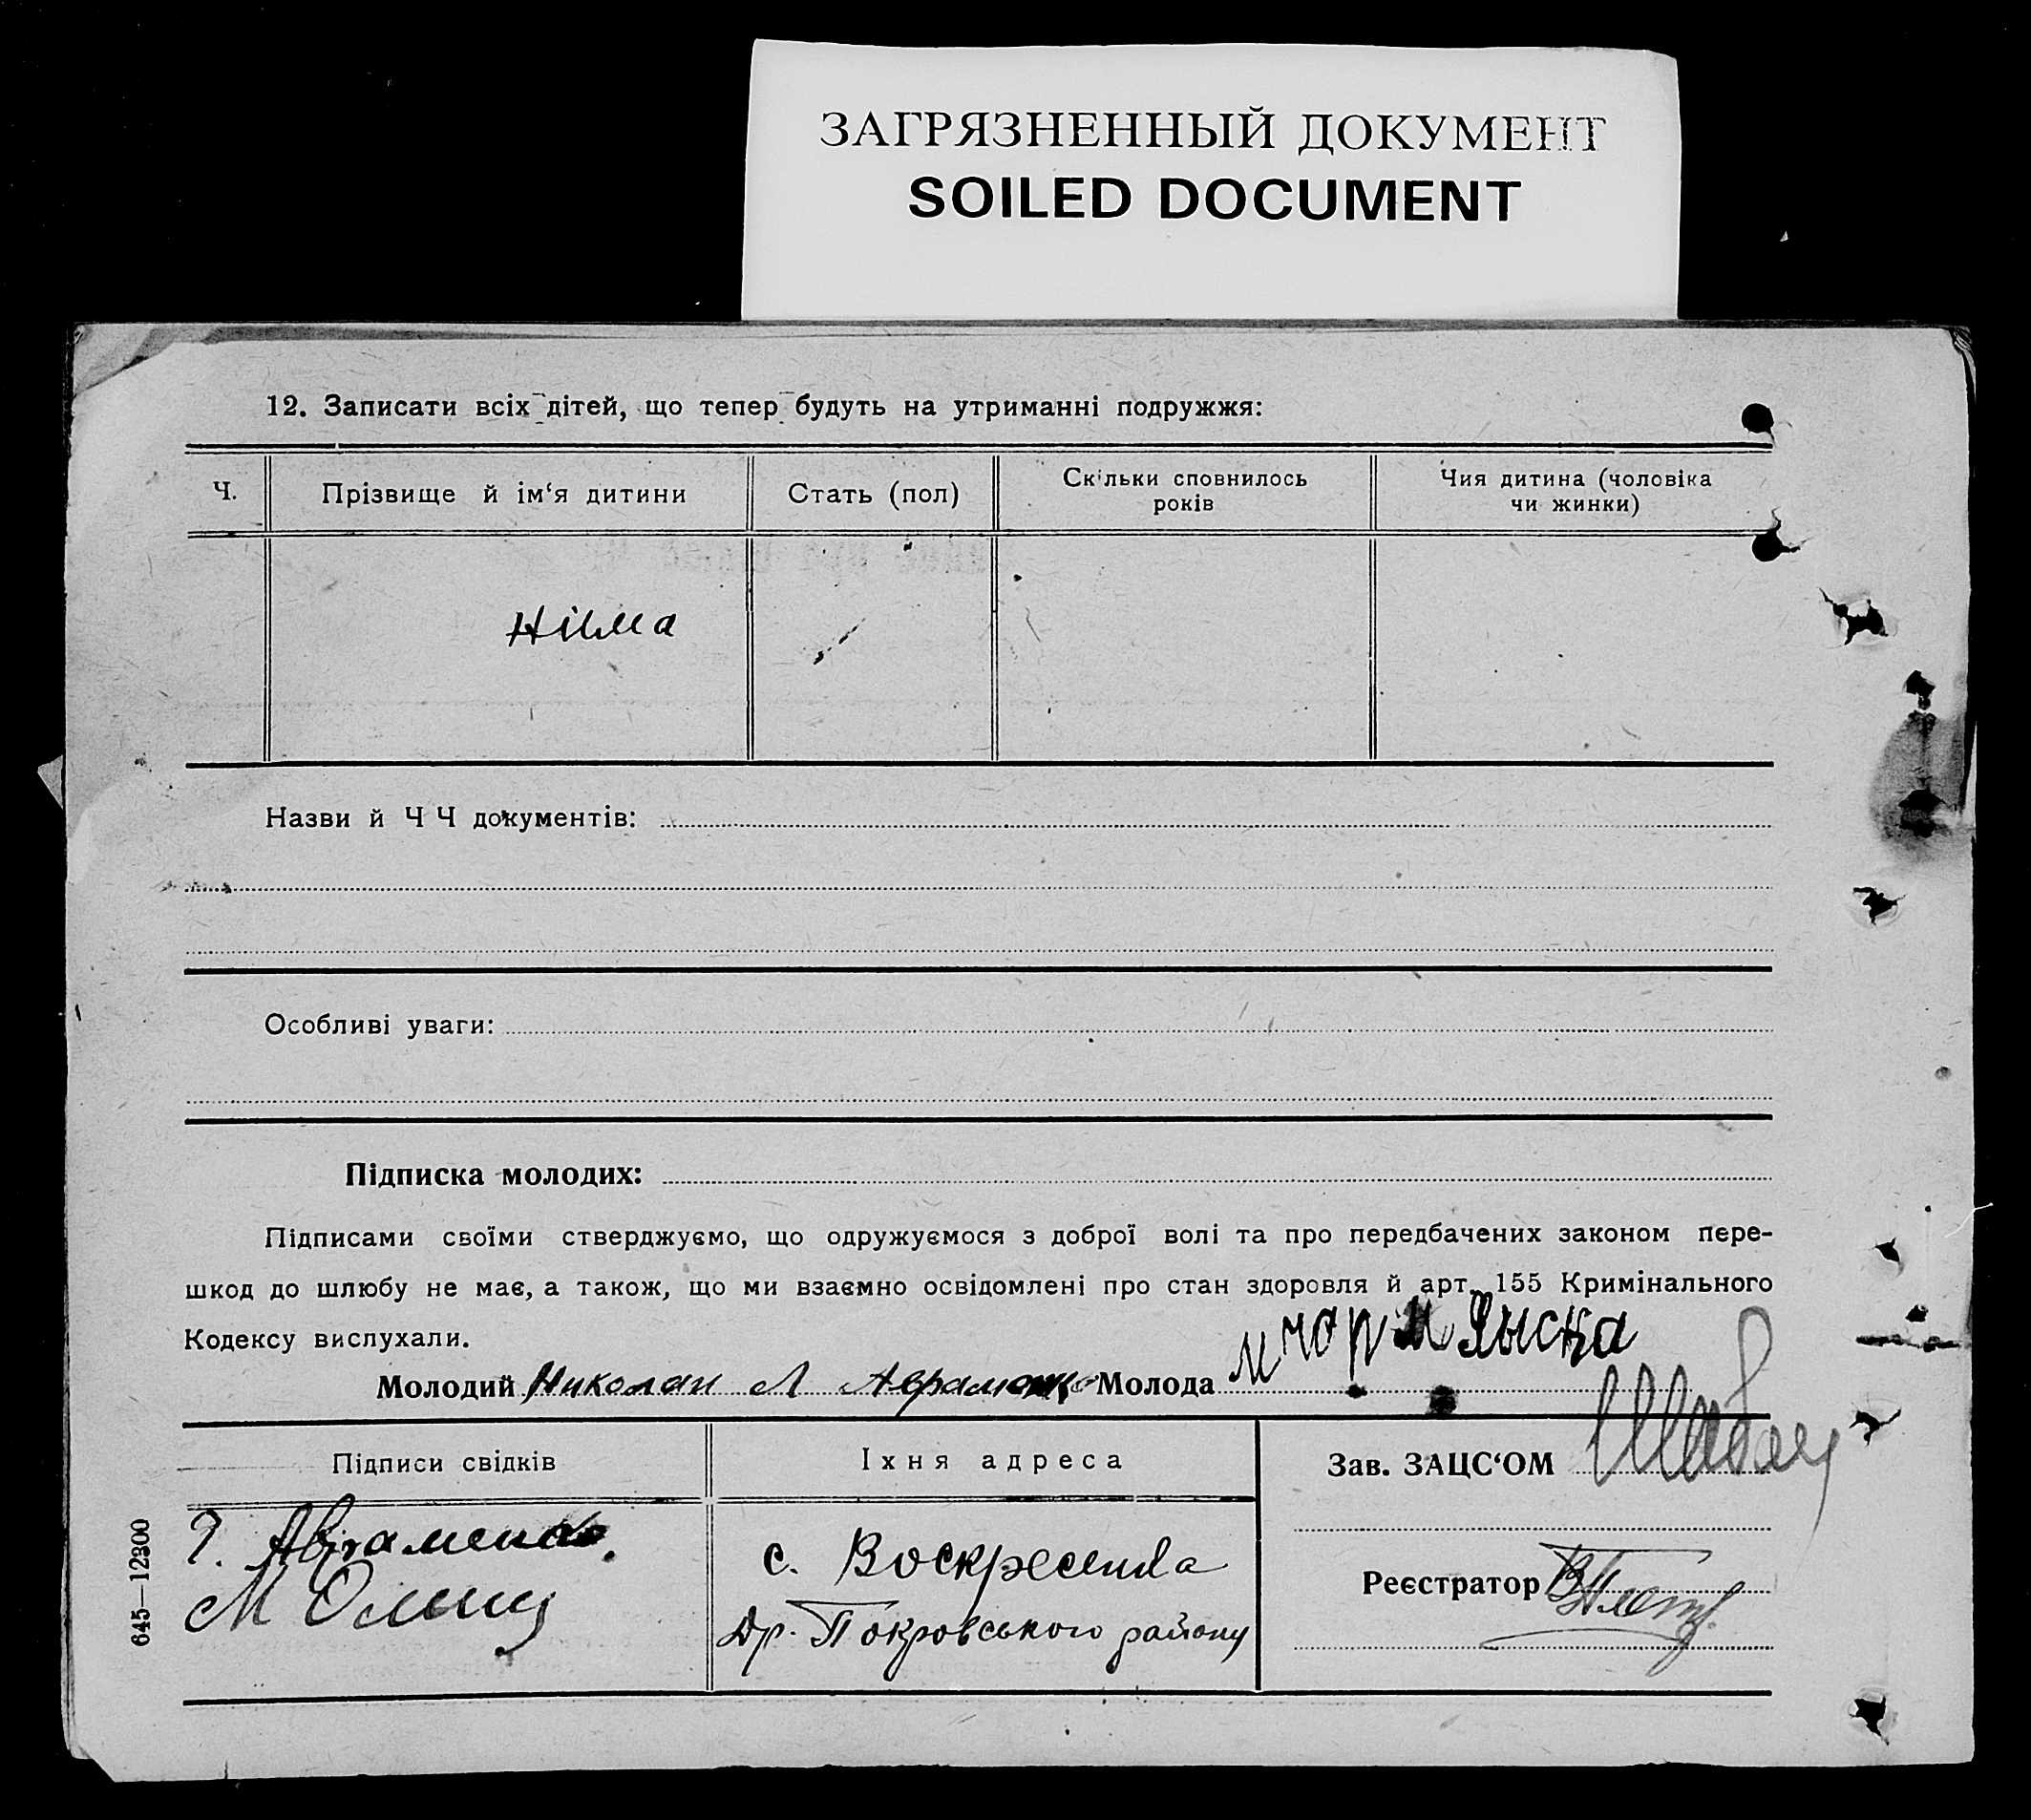 ЗАГРЯЗНЕННЫЙ ДОКУМЕНТ
SOILED DOCUMENT
12. Записати всіх дітей, що тепер будуть на утриманні подружжя:
Ч.
Прізвище й ім‘я дитини
Стать (пол)
Скільки сповнилось
років
Чия дитина (чоловіка
чи жинки)
Німа
Назви й Ч Ч документів:
Особливі уваги:
Підписка молодих:
Підписами своїми стверджуємо, що одружуємося з доброї волі та про передбачених законом пере-
шкод до шлюбу не має, а також, що ми взаємно освідомлені про стан здоровля й арт. 155 Кримінального
Кодексу вислухали.
Молодий Николай Л Авраменко Молода
Підписи свідків
Г. Авраменко.
М
Їхня адреса
с. Воскресенка
Др. Покровського району
Зав. ЗАЦС‘ОМ
Реєстратор
645—12300